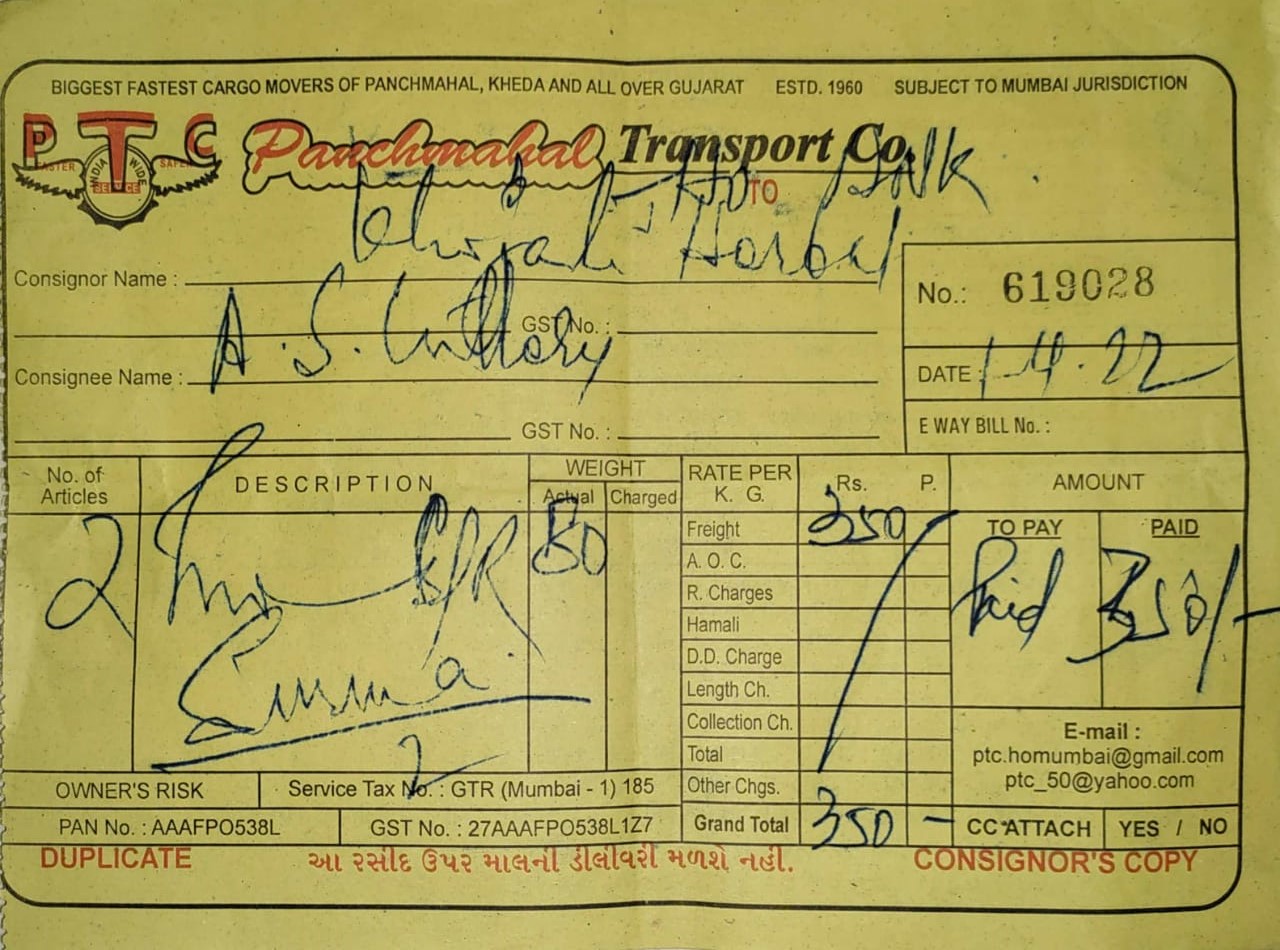 BIGGEST FASTEST CARGO MOVERS OF PANCHMAHAL, KHEDA AND ALL OVER GUJARAT ESTD. 1960 SUBJECT TO MUMBAI JURISDICTION
PTC FASTER SAFE INDIA WIDE SERVICE Panchmahal Transport Co.
TO
Consignor Name :
No.: 619028
GST No. :
A. S.
Consignee Name :
DATE : 1-4.22
GST No. :
E WAY BILL No. :
No. of Articles DESCRIPTION WEIGHT Actual Charged RATE PER K. G. Rs. P. AMOUNT
2 50
Freight 350 TO PAY PAID
A. O. C.
R. Charges
Hamali Paid 350/-
D.D. Charge
Length Ch.
Collection Ch.
Total
Other Chgs.
E-mail :
ptc.homumbai@gmail.com
ptc_50@yahoo.com
2
OWNER'S RISK Service Tax No. : GTR (Mumbai - 1) 185
PAN No. : AAAFPO538L GST No. : 27AAAFPO538L1Z7 Grand Total 350 - CC ATTACH YES / NO
DUPLICATE આ રસીદ ઉપર માલની ડીલીવરી મળશે નહી. CONSIGNOR'S COPY